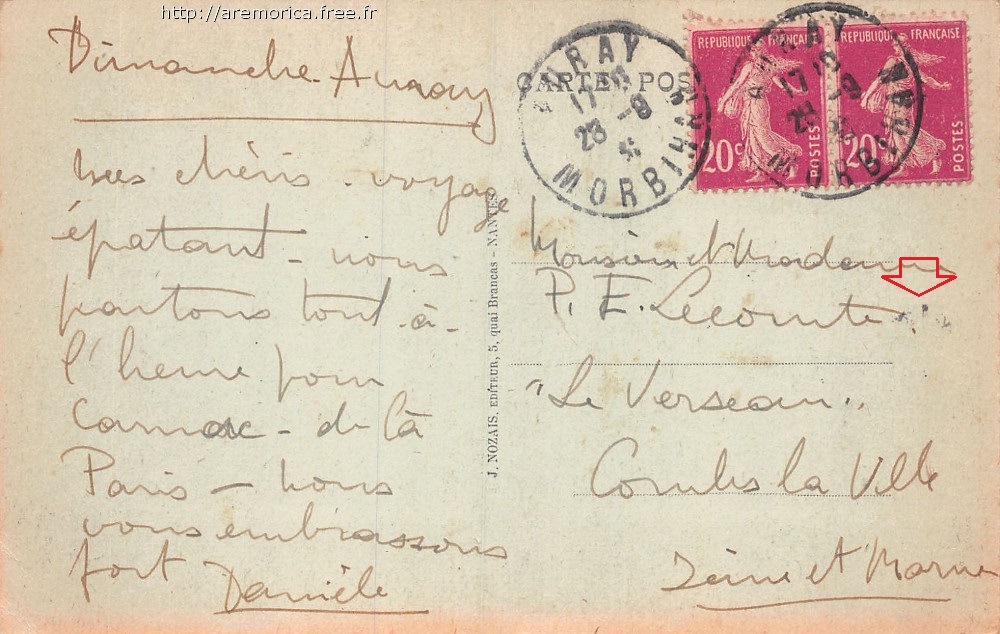 http://aremorica.free.fr
Dimanche Auray
mes chéris - voyage
épatant - nous
partons tout-à-
l'heure pour
Carnac - de là
Paris - nous
vous embrassons
fort
Danièle
J. NOZAIS, EDITEUR, 5, quai Brancas - NANTES
CARTE POS
AURAY
17 15
23 -9
MORBIHAN
REPUBLIQUE FRANÇAISE
20c
POSTES
REPUBLIQUE FRANÇAISE
20c
POSTES
AURAY
17
23 -9
MORBIHAN
Monsieur et Madame
P. E. Lecomte
"Le Verseau"
Combs la Ville
Seine et Marne